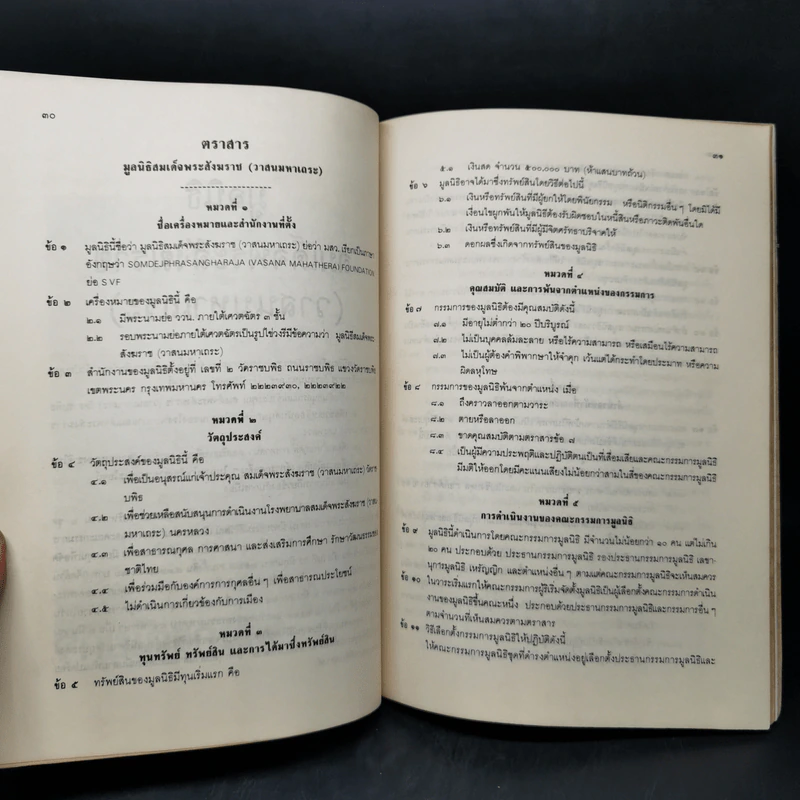 ๓๐
ตราสาร
มูลนิธิสมเด็จพระสังฆราช (วาสนมหาเถระ)
หมวดที่ ๑
ชื่อเครื่องหมายและสำนักงานที่ตั้ง
ข้อ ๑ มูลนิธินี้ชื่อว่า มูลนิธิสมเด็จพระสังฆราช (วาสนมหาเถระ) ย่อว่า มสว. เรียกเป็นภาษา
อังกฤษว่า SOMDEJPHRASANGHARAJA (VASANA MAHATHERA) FOUNDATION
ย่อ S V F
ข้อ ๒ เครื่องหมายของมูลนิธินี้ คือ
๒.๑ มีพระนามย่อ ววน. ภายใต้เศวตฉัตร ๓ ชั้น
๒.๒ รอบพระนามย่อภายใต้เศวตฉัตรเป็นรูปไข่วงรีมีข้อความว่า มูลนิธิสมเด็จพระ-
สังฆราช (วาสนมหาเถระ)
ข้อ ๓ สำนักงานของมูลนิธิตั้งอยู่ที่ เลขที่ ๒ วัดราชบพิธ ถนนราชบพิธ แขวงวัดราชบพิธ
เขตพระนคร กรุงเทพมหานคร โทรศัพท์ ๒๒๒๓๙๓๐, ๒๒๒๓๙๒๒
หมวดที่ ๒
วัตถุประสงค์
ข้อ ๔ วัตถุประสงค์ของมูลนิธินี้ คือ
๔.๑ เพื่อเป็นอนุสรณ์แก่เจ้าประคุณ สมเด็จพระสังฆราช (วาสนมหาเถระ) วัดราช
บพิธ
๔.๒ เพื่อช่วยเหลือสนับสนุนการดำเนินงานโรงพยาบาลสมเด็จพระสังฆราช (วาสน
มหาเถระ) นครหลวง
๔.๓ เพื่อสาธารณกุศล การศาสนา และส่งเสริมการศึกษา รักษาวัฒนธรรมของ
ชาติไทย
๔.๔ เพื่อร่วมมือกับองค์การการกุศลอื่น ๆ เพื่อสาธารณประโยชน์
๔.๕ ไม่ดำเนินการเกี่ยวข้องกับการเมือง
หมวดที่ ๓
ทุนทรัพย์ ทรัพย์สิน และการได้มาซึ่งทรัพย์สิน
ข้อ ๕ ทรัพย์สินของมูลนิธิมีทุนเริ่มแรก คือ
๓๑
๕.๑ เงินสด จำนวน ๕๐๐,๐๐๐ บาท (ห้าแสนบาทถ้วน)
ข้อ ๖ มูลนิธิอาจได้มาซึ่งทรัพย์สินโดยวิธีต่อไปนี้
๖.๑ เงินหรือทรัพย์สินที่มีผู้ยกให้โดยพินัยกรรม หรือนิติกรรมอื่น ๆ โดยมิได้มี
เงื่อนไขผูกพันให้มูลนิธิต้องรับผิดชอบในหนี้สินหรือภาระติดพันอื่นใด
๖.๒ เงินหรือทรัพย์สินที่มีผู้มีจิตศรัทธาบริจาคให้
๖.๓ ดอกผลซึ่งเกิดจากทรัพย์สินของมูลนิธิ
หมวดที่ ๔
คุณสมบัติ และการพ้นจากตำแหน่งของกรรมการ
ข้อ ๗ กรรมการของมูลนิธิต้องมีคุณสมบัติดังนี้
๗.๑ มีอายุไม่ต่ำกว่า ๒๐ ปีบริบูรณ์
๗.๒ ไม่เป็นบุคคลล้มละลาย หรือไร้ความสามารถ หรือเสมือนไร้ความสามารถ
๗.๓ ไม่เป็นผู้ต้องคำพิพากษาให้จำคุก เว้นแต่ได้กระทำโดยประมาท หรือความ
ผิดลหุโทษ
ข้อ ๘ กรรมการของมูลนิธิพ้นจากตำแหน่ง เมื่อ
๘.๑ ถึงคราวลาออกตามวาระ
๘.๒ ตายหรือลาออก
๘.๓ ขาดคุณสมบัติตามตราสารข้อ ๗
๘.๔ เป็นผู้มีความประพฤติและปฏิบัติตนเป็นที่เสื่อมเสียและคณะกรรมการมูลนิธิ
มีมติให้ออกโดยมีคะแนนเสียงไม่น้อยกว่าสามในสี่ของคณะกรรมการมูลนิธิ
หมวดที่ ๕
การดำเนินงานของคณะกรรมการมูลนิธิ
ข้อ ๙ มูลนิธินี้ดำเนินการโดยคณะกรรมการมูลนิธิ มีจำนวนไม่น้อยกว่า ๑๐ คน แต่ไม่เกิน
๒๐ คน ประกอบด้วย ประธานกรรมการมูลนิธิ รองประธานกรรมการมูลนิธิ เลขา-
นุการมูลนิธิ เหรัญญิก และตำแหน่งอื่น ๆ ตามแต่คณะกรรมการมูลนิธิจะเห็นสมควร
ข้อ ๑๐ ในวาระเริ่มแรกให้คณะกรรมการผู้ริเริ่มจัดตั้งมูลนิธิเป็นผู้เลือกตั้งคณะกรรมการดำเนิน
งานของมูลนิธิขึ้นคณะหนึ่ง ประกอบด้วยประธานกรรมการมูลนิธิและกรรมการอื่น ๆ
ตามจำนวนที่เห็นสมควรตามตราสาร
ข้อ ๑๑ วิธีเลือกตั้งกรรมการมูลนิธิให้ปฏิบัติดังนี้
ให้คณะกรรมการมูลนิธิชุดที่ดำรงตำแหน่งอยู่เลือกตั้งประธานกรรมการมูลนิธิและ